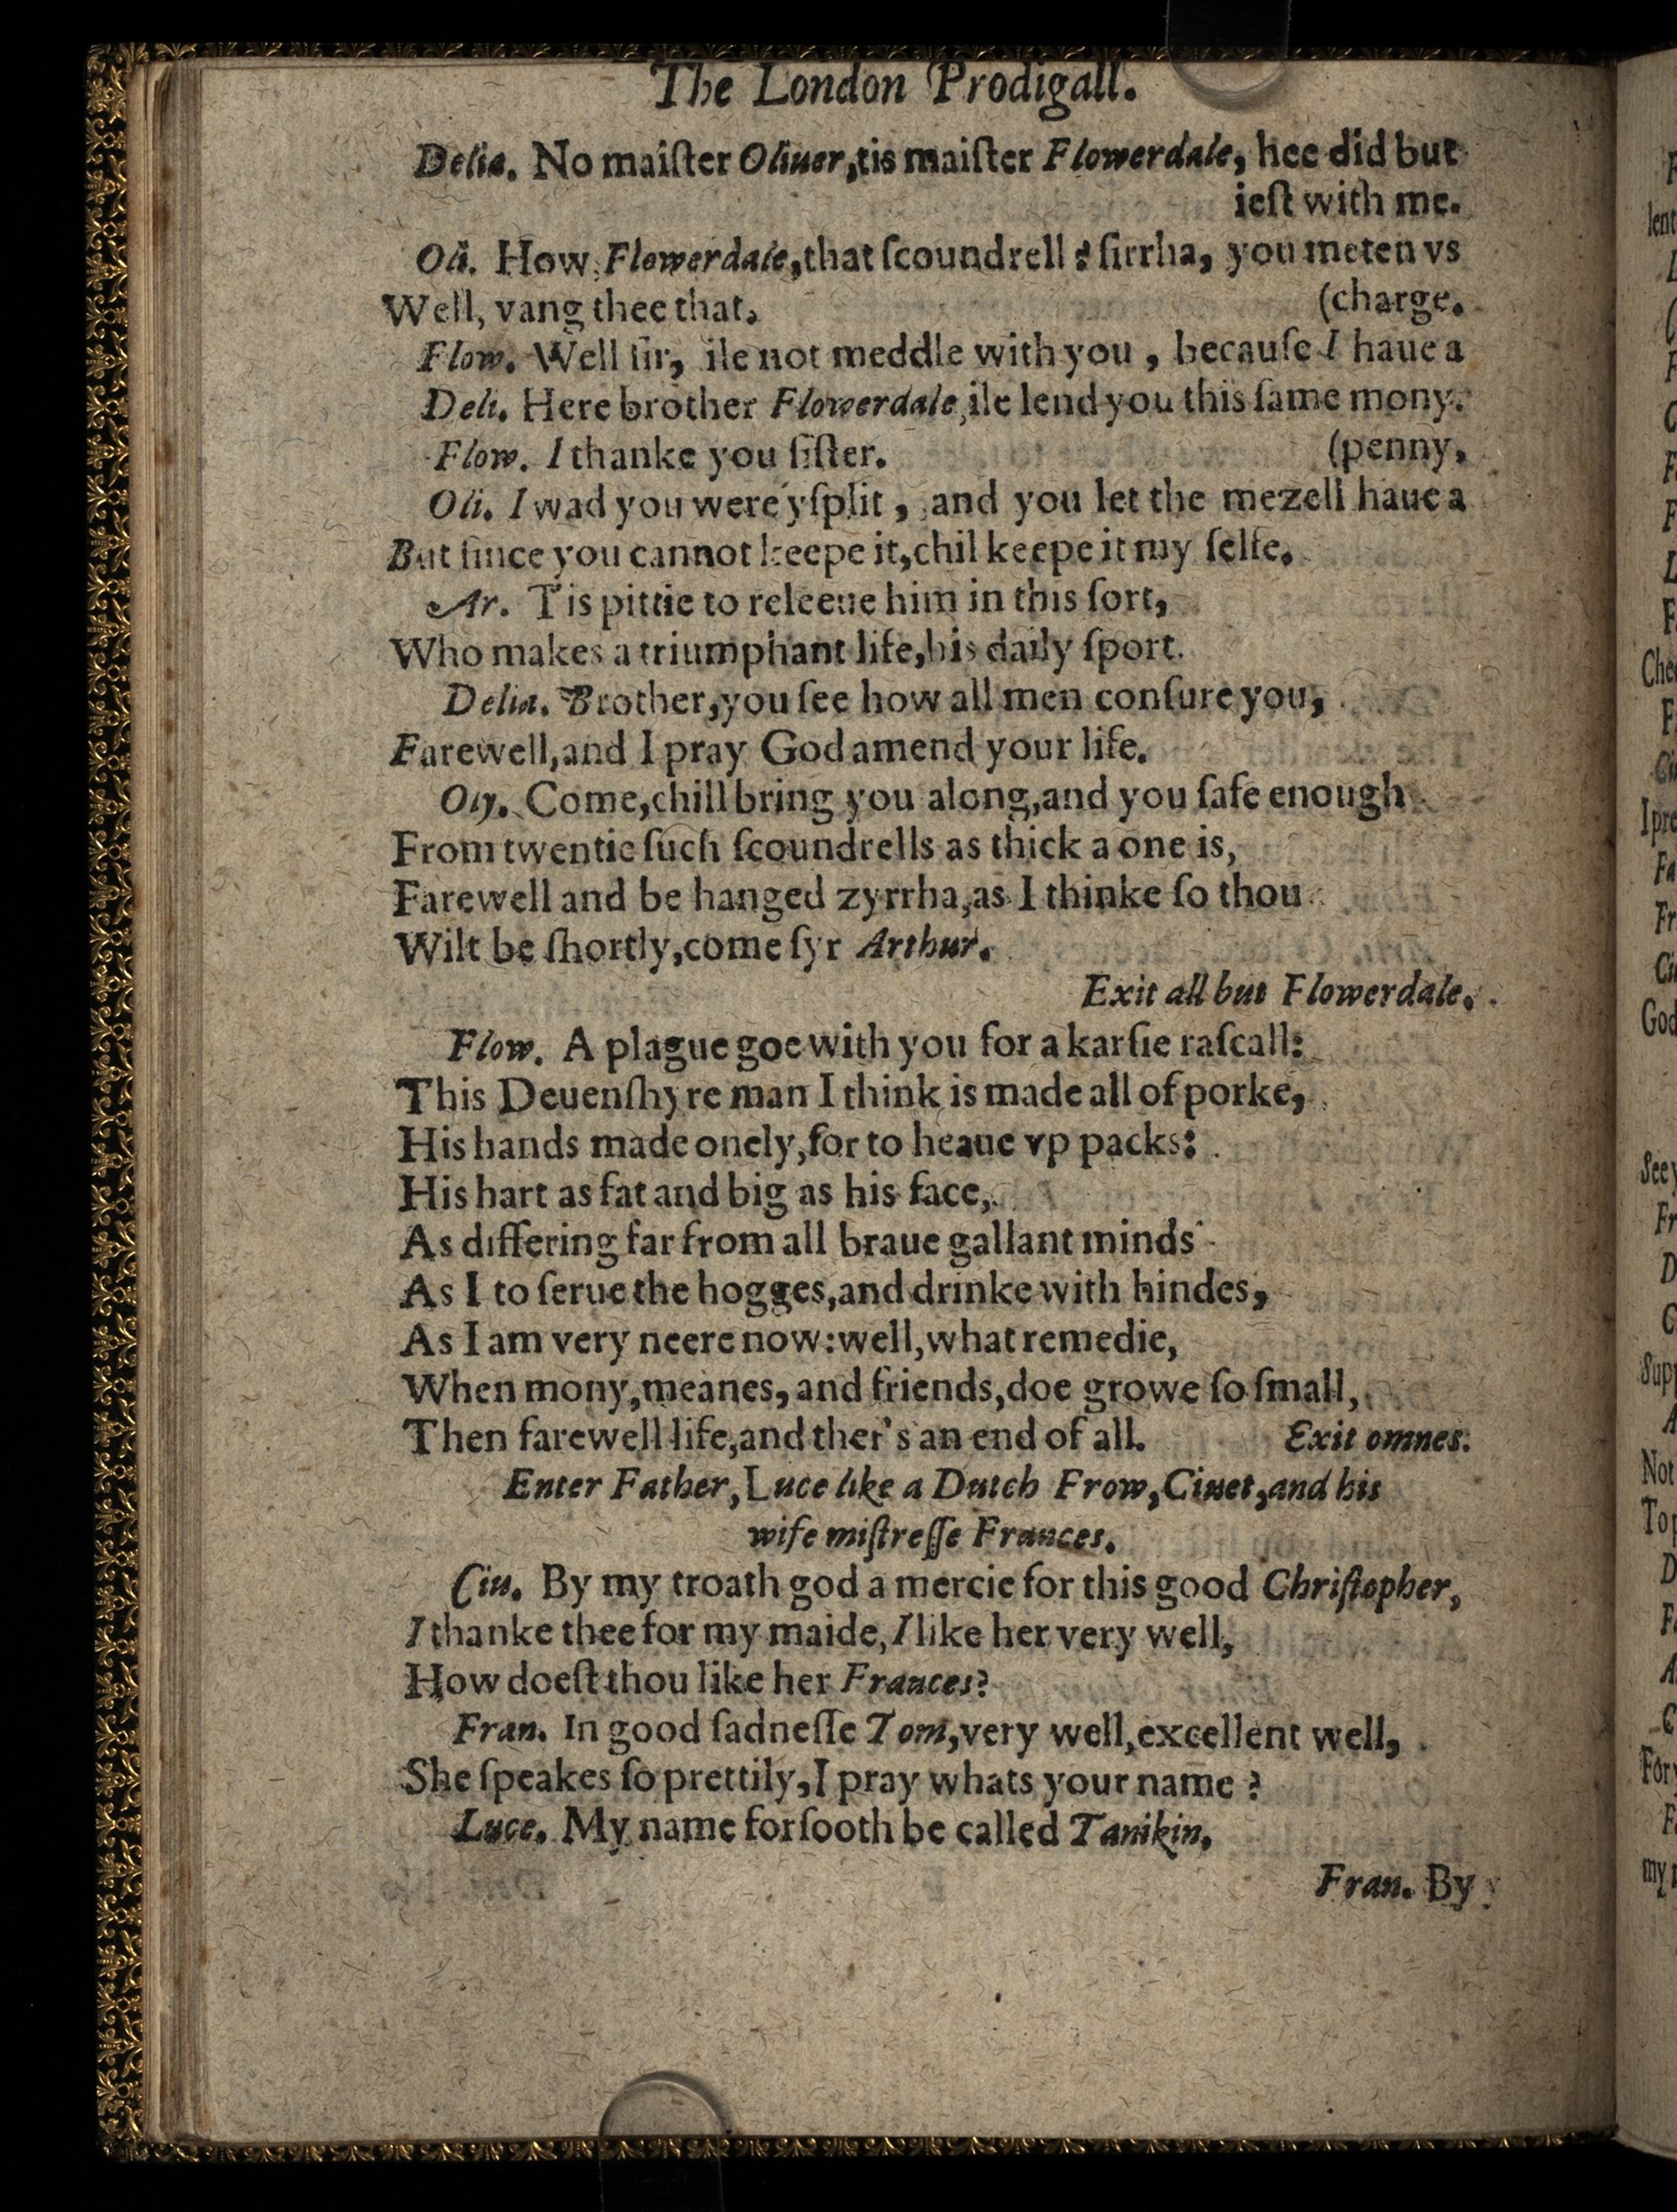 The London Prodigall.
Delia. No maiſter Oliuer,tis maiſter Flowerdale, hee did but
ieſt with me.
Oli. How Flowerdale,that ſcoundrell ? ſirrha, you meten vs
Well, vang thee that,
(charge.
Flow. Well ſir, ile not meddle with you , becauſe I haue a
Deli. Here brother Flowerdale,ile lend you this ſame mony.
Flow. I thanke you ſiſter.
(penny,
Oli. I wad you were yſplit , and you let the mezell haue a
But ſince you cannot keepe it,chil keepe it my ſelfe,
Ar. Tis pittie to releeue him in this ſort,
Who makes a triumphant life,his daily ſport.
Delia. Brother,you ſee how all men conſure you,
Farewell,and I pray God amend your life.
Oly. Come,chill bring you along,and you ſafe enough
From twentie ſuch ſcoundrells as thick a one is,
Farewell and be hanged zyrrha,as I thinke ſo thou
Wilt be ſhortly,come ſyr Arthur.
Exit all but Flowerdale.
Flow. A plague goe with you for a karſie raſcall:
This Deuenſhyre man I think is made all of porke,
His hands made onely,for to heaue vp packs:
His hart as fat and big as his face,
As differing far from all braue gallant minds
As I to ſerue the hogges,and drinke with hindes,
As I am very neere now:well,what remedie,
When mony,meanes, and friends,doe growe ſo ſmall,
Then farewell life,and ther's an end of all. Exit omnes.
Enter Father,Luce like a Dutch Frow,Ciuet,and his
wife miſtreſſe Frances.
Ciu. By my troath god a mercie for this good Chriſtopher,
I thanke thee for my maide,I like her very well,
How doeſt thou like her Frances?
Fran. In good ſadneſſe Tom,very well,excellent well,
She ſpeakes ſo prettily,I pray whats your name ?
Luce. My name forſooth be called Tanikin.
Fran. By